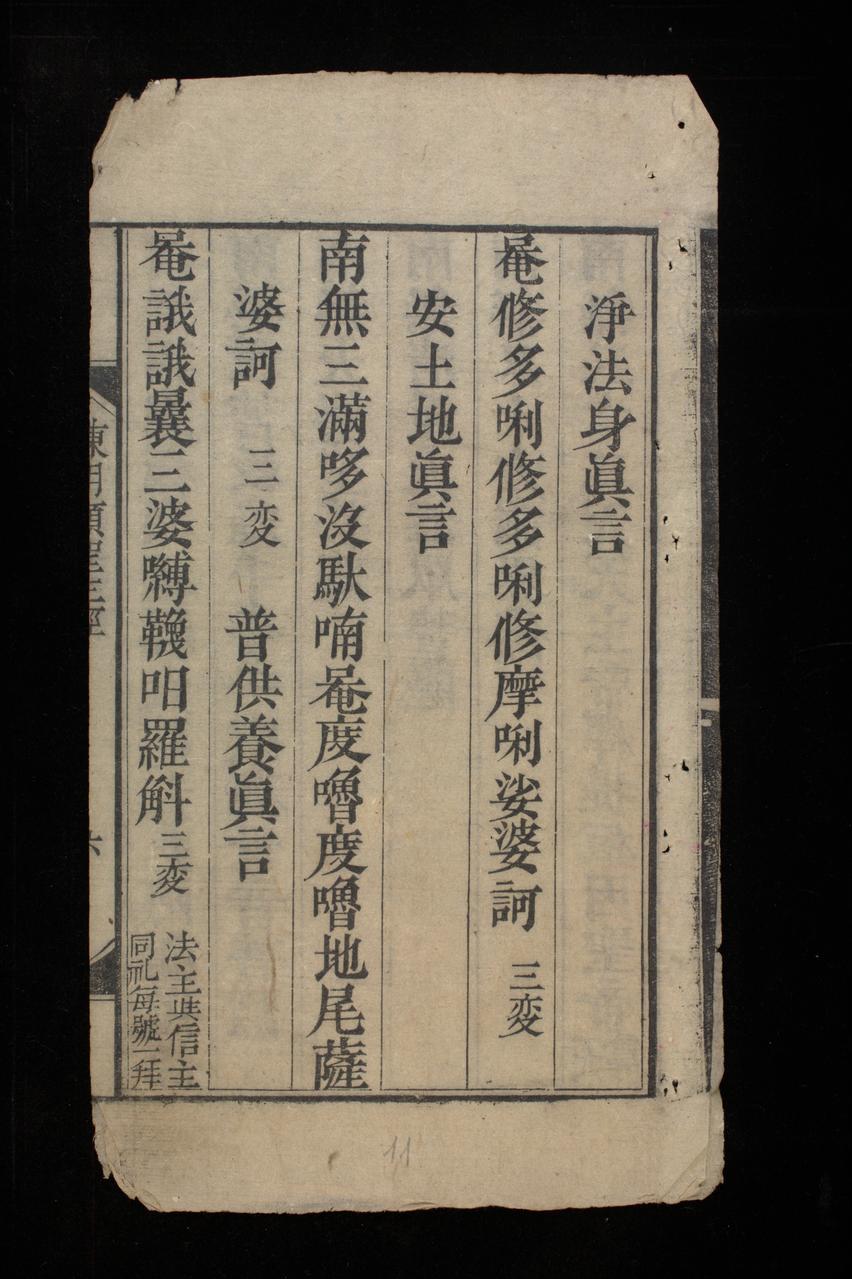 淨法身眞言
唵修多唎修多唎修摩唎娑婆訶 三変
安土地眞言
南無三滿哆没馱喃唵度嚕度嚕地尾薩
婆訶 三変 普供養眞言
唵誐誐曩三婆嚩韈㖕羅斛 三変 法主共信主
同礼每號一拜
六
11